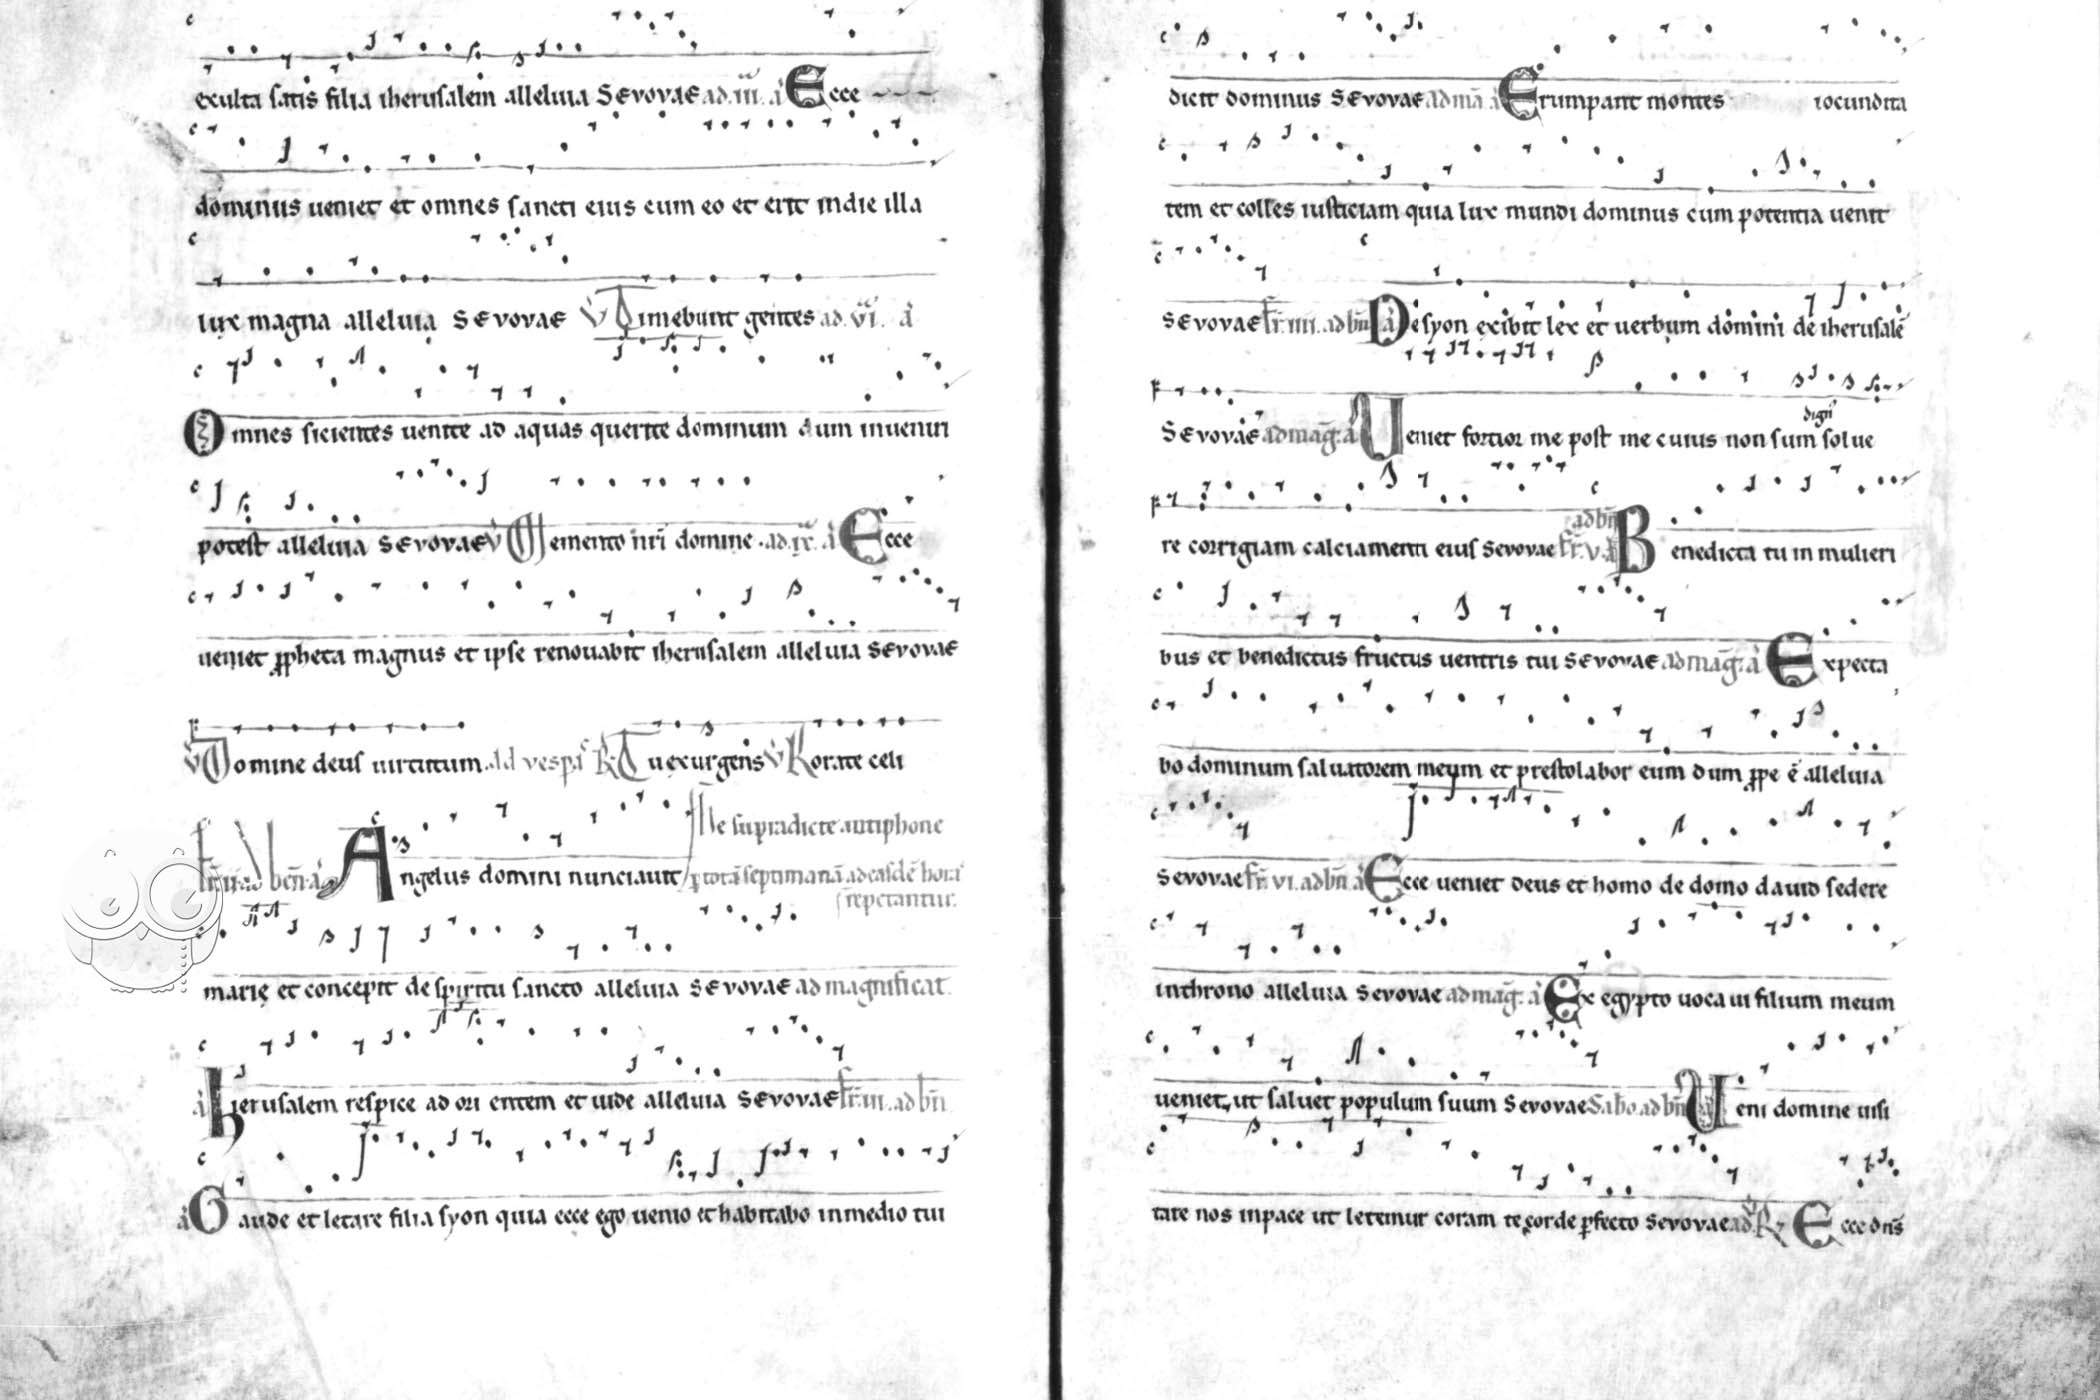 exulta satis filia iherusalem alleluia SEVOVAE ad .iii. a Ecce
dominus veniet et omnes sancti eius cum eo et erit in die illa
lux magna alleluia SEVOVAE V Timebunt gentes ad .vi. a
Omnes sicientes venite ad aquas querite dominum dum inveniri
potest alleluia SEVOVAE V Memento nr̄i domine .ad .ix. a Ecce
veniet ꝓpheta magnus et ipse renovabit iherusalem alleluia SEVOVAE
V Domine deus virtutum. Ad vesp̄ R Tu exurgens V Rorate celi
He supradicte antiphone
fr̄ .ii. ad ben̄ .a Angelus domini nunciavit ꝑ totā septimanā ad easdē horas
repetantur.
marię et concepit de spiritu sancto alleluia SEVOVAE ad magnificat
a Hierusalem respice ad orientem et vide alleluia SEVOVAE fr̄ .iii. ad bn̄
a Gaude et letare filia syon quia ecce ego venio et habitabo in medio tui
dicit dominus SEVOVAE ad mā a Erumpant montes iocundita
tem et colles iusticiam quia lux mundi dominus cum potentia venit
SEVOVAE fr̄ .iiii. ad bn̄ a De syon exibit lex et verbum domini de iherusalē
SEVOVAE ad maḡ. a Veniet fortior me post me cuius non sum dign' solve
re corrigiam calciamenti eius Sevovae fr̄ .v. ad bn̄ a Benedicta tu in mulieri
bus et benedictus fructus ventris tui SEVOVAE ad maḡ. a Expecta
bo dominum salvatorem meum et prestolabor eum dum ꝓpe ē alleluia
SEVOVAE fr̄ .vi. ad bn̄ a Ecce veniet deus et homo de domo david sedere
in throno alleluia Sevovae ad maḡ. a Ex egypto vocavi filium meum
veniet, ut salvet populum suum Sevovae Sabo ad bn̄ a Veni domine visi
tare nos in pace ut letemur coram te corde ꝑfecto Sevovae ad V R Ecce dn̄s